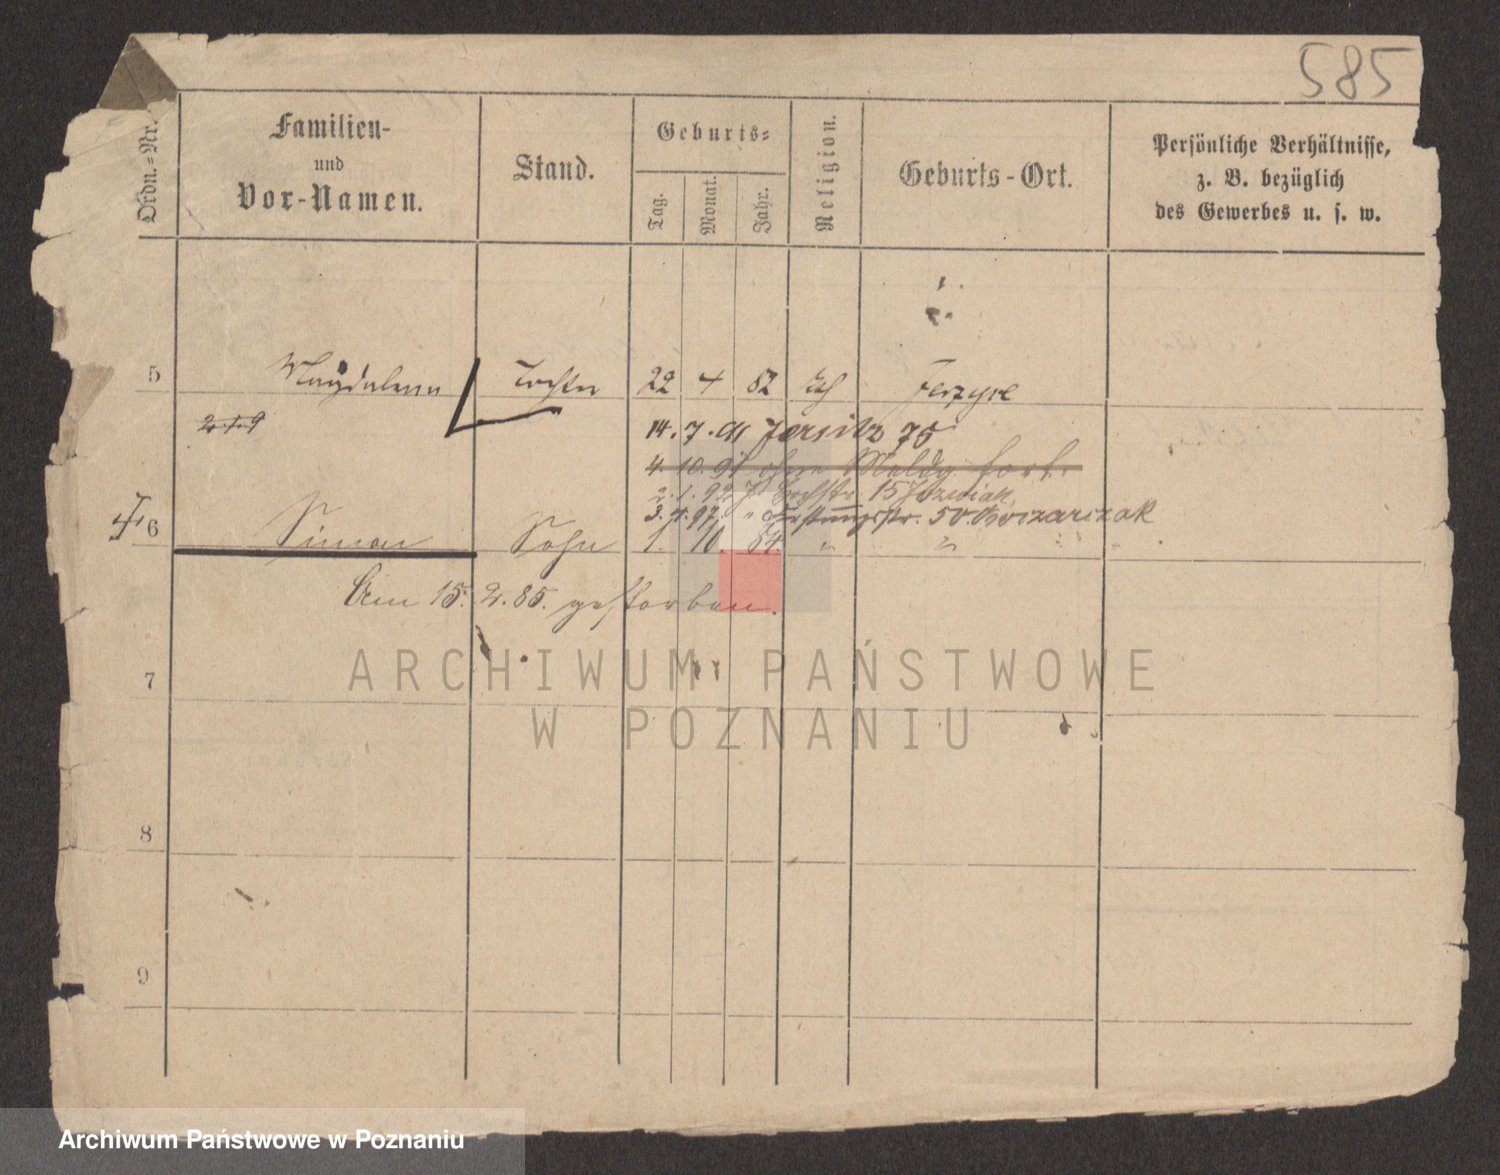 585
Ordn.-Nr.
Familien-
und
Vor-Namen.
Stand.
Geburts-
Tag.
Monat.
Jahr.
Religion.
Geburts-Ort.
Persönliche Verhältnisse,
z. B. bezüglich
des Gewerbes u. s. w.
5 Magdalena Tochter 22 4 82 Jerzyce
219
14. 7. 91 Jersitz 75
4. 10. 91 ohne Meldg fort.
2. 1. 92 15
3. 4. 97 " 50
6 Simon Sohn 1. 10. 84 " "
Am 15. 2. 85. gestorben.
7
8
9
ARCHIWUM PAŃSTWOWE
W POZNANIU
Archiwum Państwowe w Poznaniu